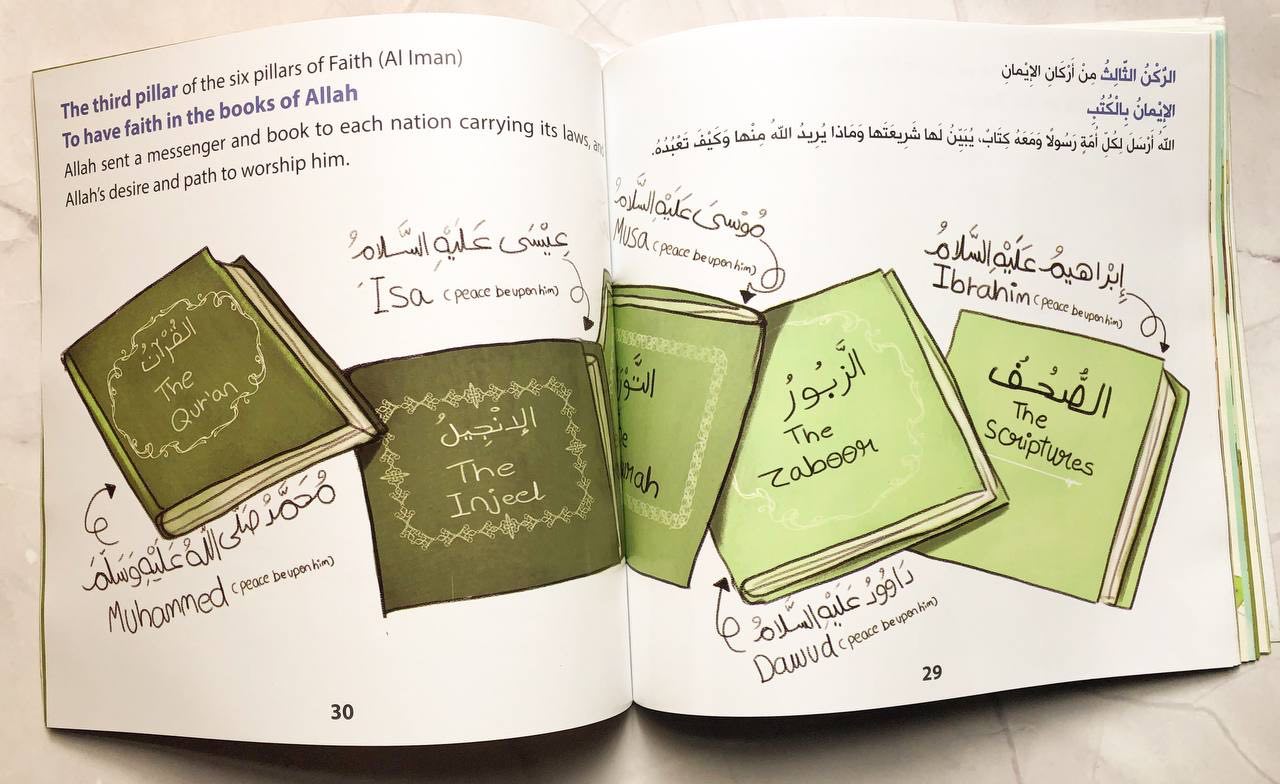 The third pillar of the six pillars of Faith (Al Iman)
To have faith in the books of Allah
Allah sent a messenger and book to each nation carrying its laws, and
Allah's desire and path to worship him.
عِيْسَى عَلَيْهِ السَّلَامُ
Isa (peace be upon him)
القُرْآنُ
The
Qur'an
الإنْجِيلُ
The
Injeel
مُحَمَّدُ صَلَّى اللَّهُ عَلَيْهِ وَسَلَّمَ
Muhammed (peace be upon him)
30
الرُّكْنُ الثَّالِثُ مِنْ أَرْكَانِ الإِيْمانِ
الإِيْمانُ بِالْكُتُبِ
اللهُ أَرْسَلَ لِكُلِ أُمَّةٍ رَسُولًا وَمَعَهُ كِتابٌ، يُبَيِّنُ لَها شَرِيعَتَها وَمَاذا يُرِيدُ اللهُ مِنْها وَكَيْفَ تَعْبُدُهُ.
مُوْسَى عَلَيْهِ السَّلَامُ
Musa (peace be upon him)
إِبْرَاهِيمُ عَلَيْهِ السَّلَامُ
Ibrahim (peace be upon him)
الزَّبُورُ
The
Zaboor
الصُّحُفُ
The
Scriptures
دَاوُودُ عَلَيْهِ السَّلَامُ
Dawud (peace be upon him)
29